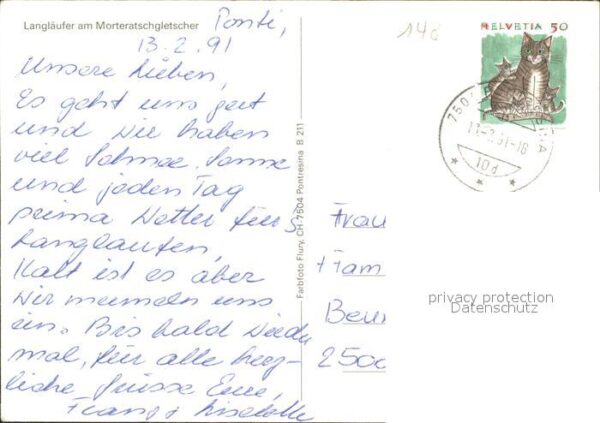 Langläufer am Morteratschgletscher
Ponti,
13.2.91
Unsere Lieben,
Es geht uns gut
und wir haben
viel Schnee, Sonne
und jeden Tag
prima Wetter fürs
Langlaufen,
Kalt ist es aber
wir mummeln uns
ein. Bis bald wieder
mal, für alle herz-
liche Grüsse Eure,
Franz + Liselotte
Farbfoto Flury, CH-7504 Pontresina B 211
14d
HELVETIA 50
7504
13-2.91-18
10d
Frau
Ham
2500
privacy protection
Datenschutz